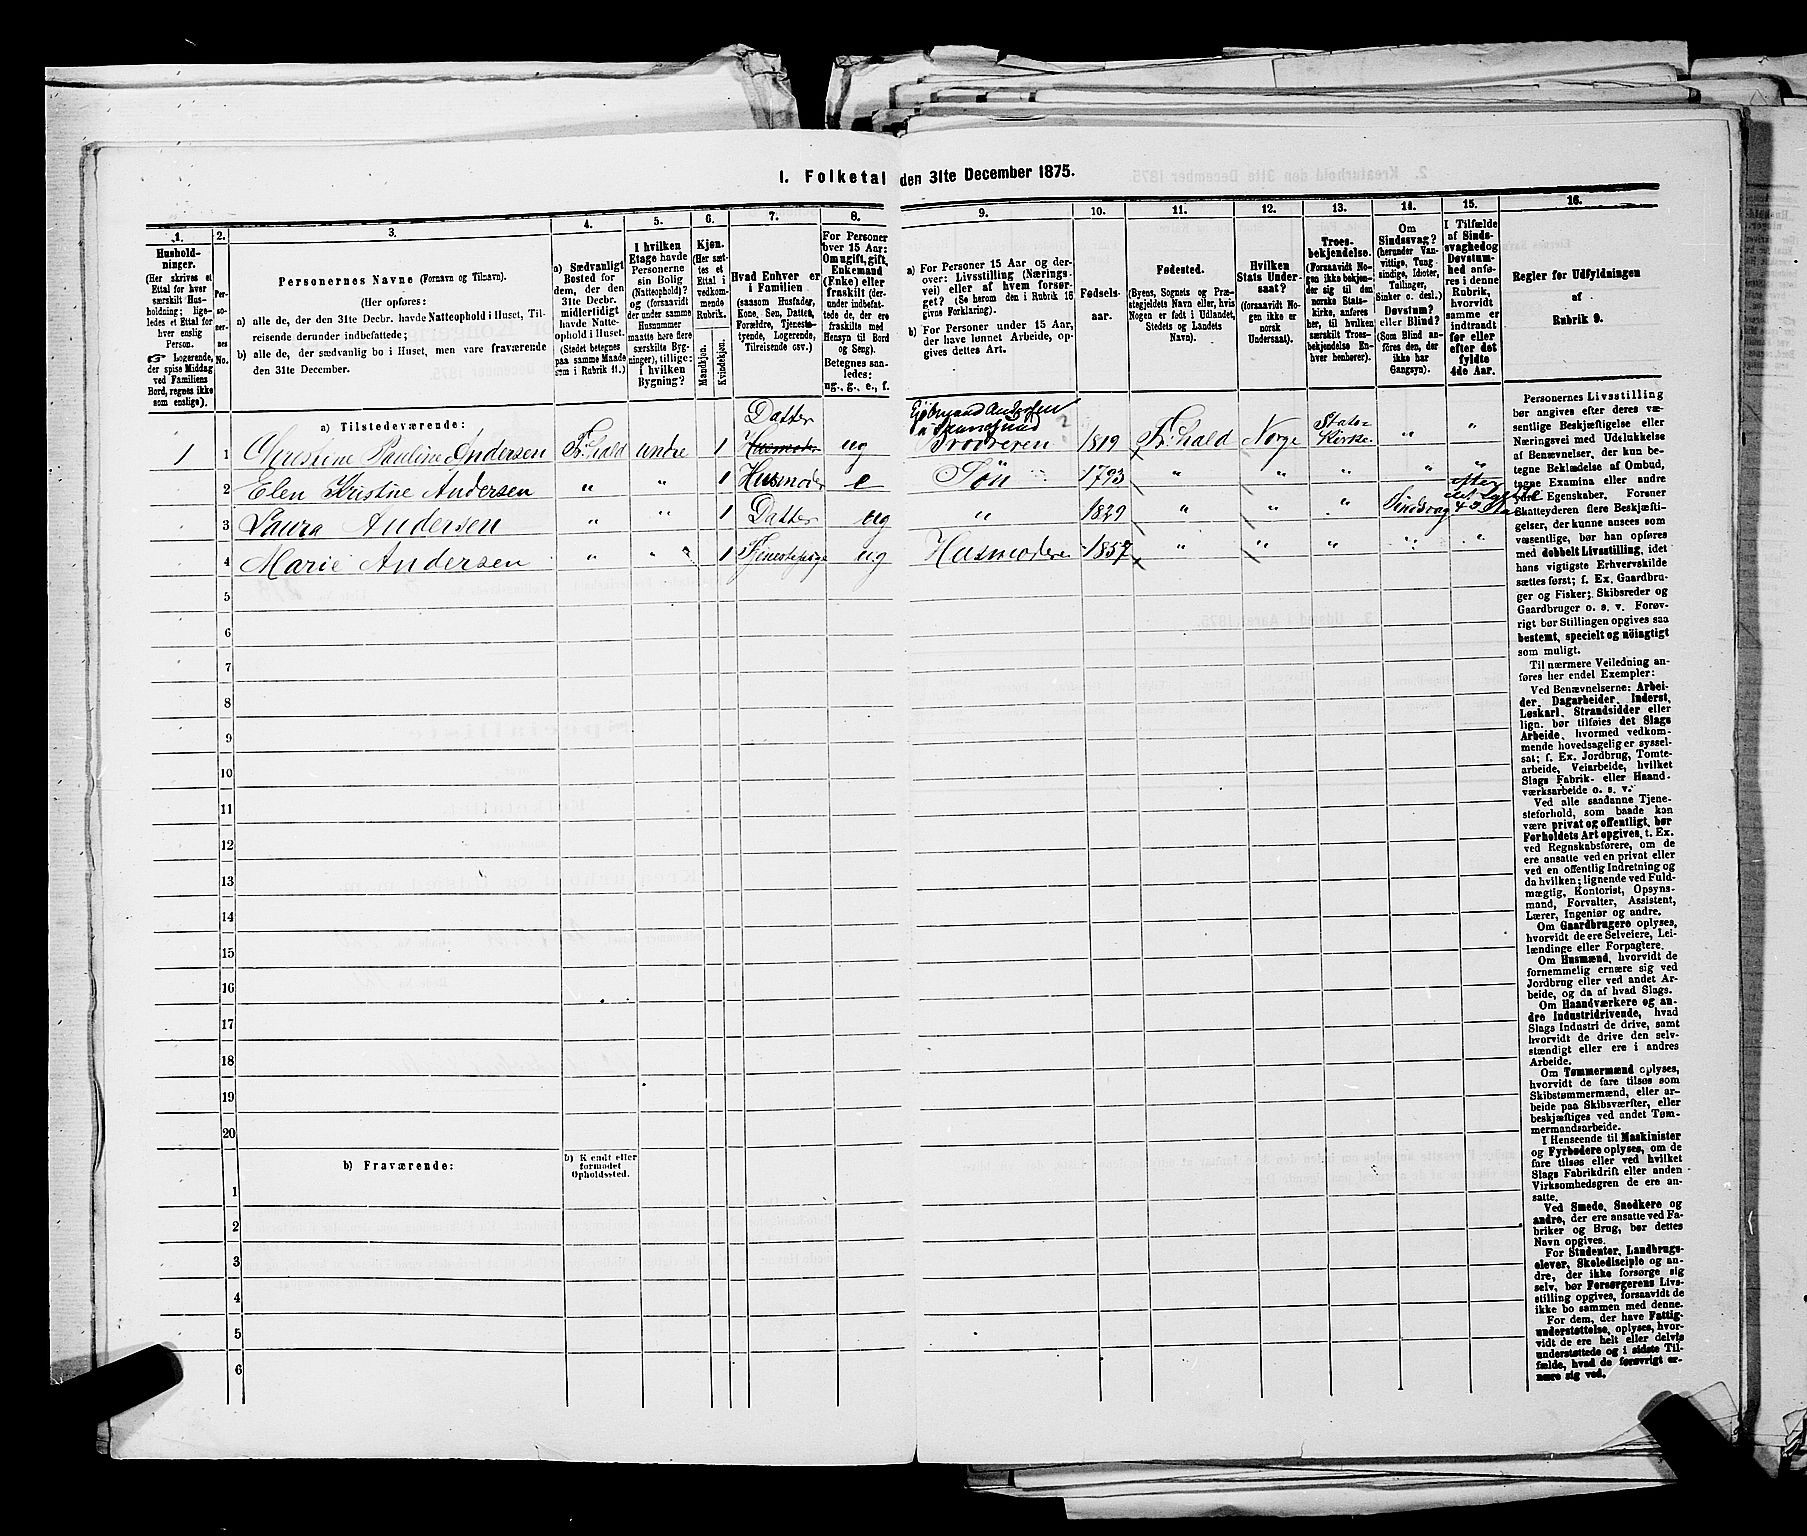 1. Folketal den 31te December 1875.
1.
2.
3.
4.
5.
6.
7.
8.
9.
10.
11.
12.
13.
14.
15.
16.
Husholdninger.
(Her skrives et
Ettal for hver
særskilt Husholdning;
ligeledes et Ettal for
hver enslig
Person.
☞ Logerende,
der spise Middag
ved Familiens
Bord, regnes ikke
som enslige).
Personernes No.
Personernes Navne (Fornavn og Tilnavn).
(Her opføres:
a) alle de, der den 31te Decbr. havde Natteophold i Huset, Tilreisende derunder indbefattede;
b) alle de, der sædvanlig bo i Huset, men vare fraværende
den 31te December.
a) Sædvanligt
Bosted for
dem, der den
31te Decbr.
midlertidigt
havde Natteophold i Huset.
(Stedet betegnes
paa samme Maade
som i Rubrik 11.)
I hvilken
Etage havde
Personerne
sin Bolig
(Natteophold)?
og (forsaavidt
der under samme
Husnummer
maatte høre flere
særskilte Bygninger), tillige:
i hvilken
Bygning?
Kjøn.
(Her sættes et
Ettal i
vedkommende
Rubrik.
Mandkjøn.
Kvindekjøn.
Hvad Enhver er
i Familien
(saasom Husfader,
Kone, Søn, Datter,
Forældre, Tjenestetyende, Logerende,
Tilreisende osv.)
For Personer
over 15 Aar:
Om ugift, gift,
Enkemand
(Enke) eller
fraskilt (derunder indbefattede de, der
ere fraskilte med
Hensyn til Bord
og Seng).
Betegnes saaledes:
ug., g., e., f.
a) For Personer 15 Aar og derover: Livsstilling (Næringsvei) eller af hvem forsørget? (Se herom den i Rubrik 16
givne Forklaring).
b) For Personer under 15 Aar,
der have lønnet Arbeide, opgives dettes Art.
Fødselsaar.
Fødested.
(Byens, Sognets og Præstegjeldets Navn eller, hvis
Nogen er født i Udlandet,
Stedets og Landets
Navn).
Hvilken
Stats Undersaat?
(forsaavidt Nogen ikke er
norsk
Undersaat).
Troesbekjendelse.
(Forsaavidt Nogen ikke bekjender sig til den
norske Statskirke, anføres
her, til hvilken
særskilt Troesbekjendelse Enhver henhører).
Om
Sindssvag?
(herunder Vanvittige, Tungsindige, Idioter,
Tullinger,
Sinker o. desl.)
Døvstum?
eller Blind?
(Som Blind anføres den, der
ikke har
Gangsyn).
I Tilfælde
af Sindssvaghed og
Døvstumhed anføres i denne
Rubrik,
hvorvidt
samme er
indtraadt
før eller
efter det
fyldte
4de Aar.
Regler for Udfyldningen
af
Rubrik 9.
a) Tilstedeværende:
1 1 Christine Pauline Andersen Fr.hald andre 1 Datter ug Broderen 1819 Fr.hald Norge Statskirke " "
2 Elen Kristine Andersen " " 1 Husmoder e Søn 1793 " " " " "
3 Laura Andersen " " 1 Datter ug " 1829 " " " Sindsvag efter
4 Marie Andersen " " 1 Tjenestepige ug Husmoderen 1857 " " " " "
5
6
7
8
9
10
11
12
13
14
15
16
17
18
19
20
b) Fraværende:
b) Kjendt eller
formodet
Opholdssted.
1
2
3
4
5
6
Personernes Livsstilling
bør angives efter deres væsentlige Beskjæftigelse eller
Næringsvei med Udelukkelse
af Benævnelser, der kun betegne Beklædelse af Ombud,
tagne Examina eller andre
ydre Egenskaber. Forener
Skatteyderen flere Beskjæftigelser, der kunne ansees som
væsentlige, bør han opføres
med dobbelt Livsstilling, idet
hans vigtigste Erhvervskilde
sættes først; f. Ex. Gaardbruger og Fisker; Skibsreder og
Gaardbruger o. s. v. Forøvrigt bør Stillingen opgives saa
bestemt, specielt og nöiagtigt
som muligt.
Til nærmere Veiledning anføres her endel Exempler:
Ved Benævnelserne: Arbeider, Dagarbeider, Inderst,
Løskarl, Strandsidder eller
lign. bør tilføies det Slags
Arbeide, hvormed vedkommende hovedsagelig er sysselsat; f. Ex. Jordbrug, Tomtearbeide, Veiarbeide, hvilket
Slags Fabrik- eller Haandværksarbeide o. s. v.
Ved alle saadanne Tjenesteforhold, som baade kan
være privat og offentligt, bør
Forholdets Art opgives, t. Ex.
ved Regnskabsførere, om de
ere ansatte ved en privat eller
ved en offentlig Indretning og
da hvilken; lignende ved Fuldmægtig, Kontorist, Opsynsmand, Forvalter, Assistent,
Lærer, Ingeniør og andre.
Om Gaardbrugere oplyses,
hvorvidt de ere Selveiere, Leilændinge eller Forpagtere.
Om Husmænd, hvorvidt de
fornemmelig ernære sig ved
Jordbrug eller ved andet Arbeide, og da af hvad Slags.
Om Haandværkere og andre Industridrivende, hvad
Slags Industri de drive, samt
hvorvidt de drive den selvstændigt eller ere i andres
Arbeide.
Om Tømmermænd oplyses,
hvorvidt de fare tilsøs som
Skibstømmermænd, eller arbeide paa Skibsværfter, eller
beskjæftiges ved andet Tømmermandsarbeide.
I Henseende til Maskinister
og Fyrbødere oplyses, om de
fare tilsøs eller ved hvilket
Slags Fabrikdrift eller anden
Virksomhedsgren de ere ansatte.
Ved Smede, Snedkere og
andre, der ere ansatte ved Fabriker og Brug, bør dettes
Navn opgives.
For Studenter, Landbrugselever, Skoledisciple og andre, der ikke forsørge sig
selv, bør Forsørgerens Livsstilling opgives, forsaavidt de
ikke bo sammen med denne.
For dem, der have Fattigunderstøttelse, oplyses, hvorvidt de ere helt eller delvis
understøttede og i sidste Tilfælde, hvad de forøvrigt ernære sig ved.